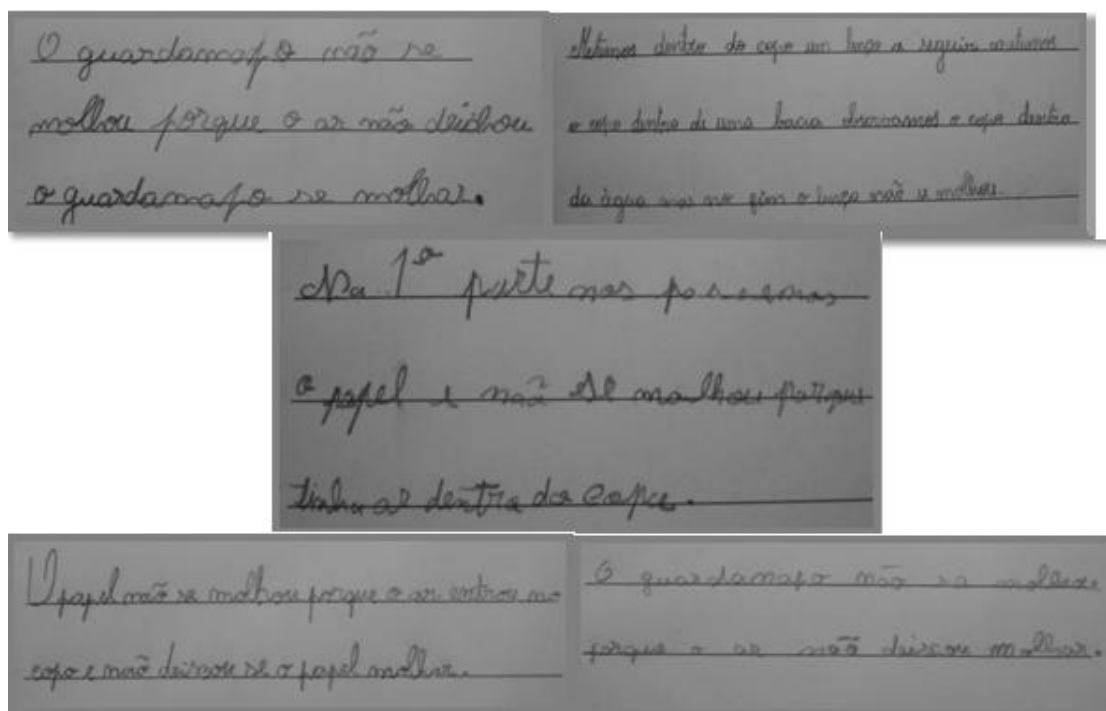 O guardanapo não se
molhou porque o ar não deichou
o guardanapo se molhar.
Metemos dentro do copo um lenço a seguir metemos
o copo dentro de uma bacia observamos o copo dentro
da água mas no fim o lenço não se molhou.
Na 1ª parte nos
o papel e não se molhou porque
tinha ar dentro do copo.
O papel não se molhou porque o ar entrou no
copo e não deixou se o papel molhar.
O guardanapo não sa molhou
porque o ar não deixou molhar.